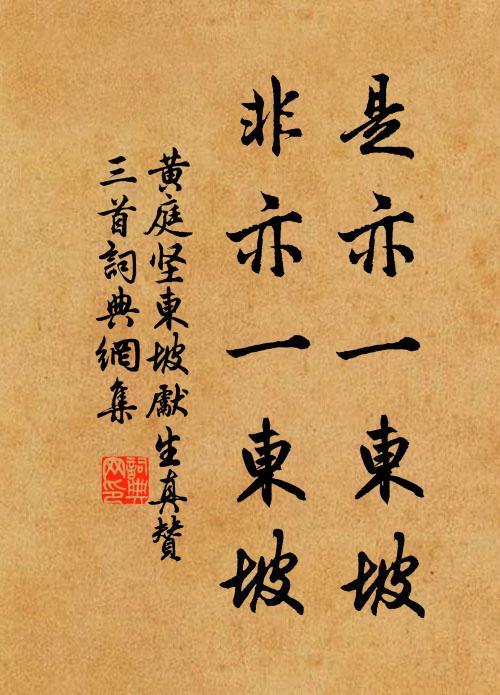 是亦一東坡
非亦一東坡
黄庭坚東坡獻生真贊
三首詞典網集
詞典
网印